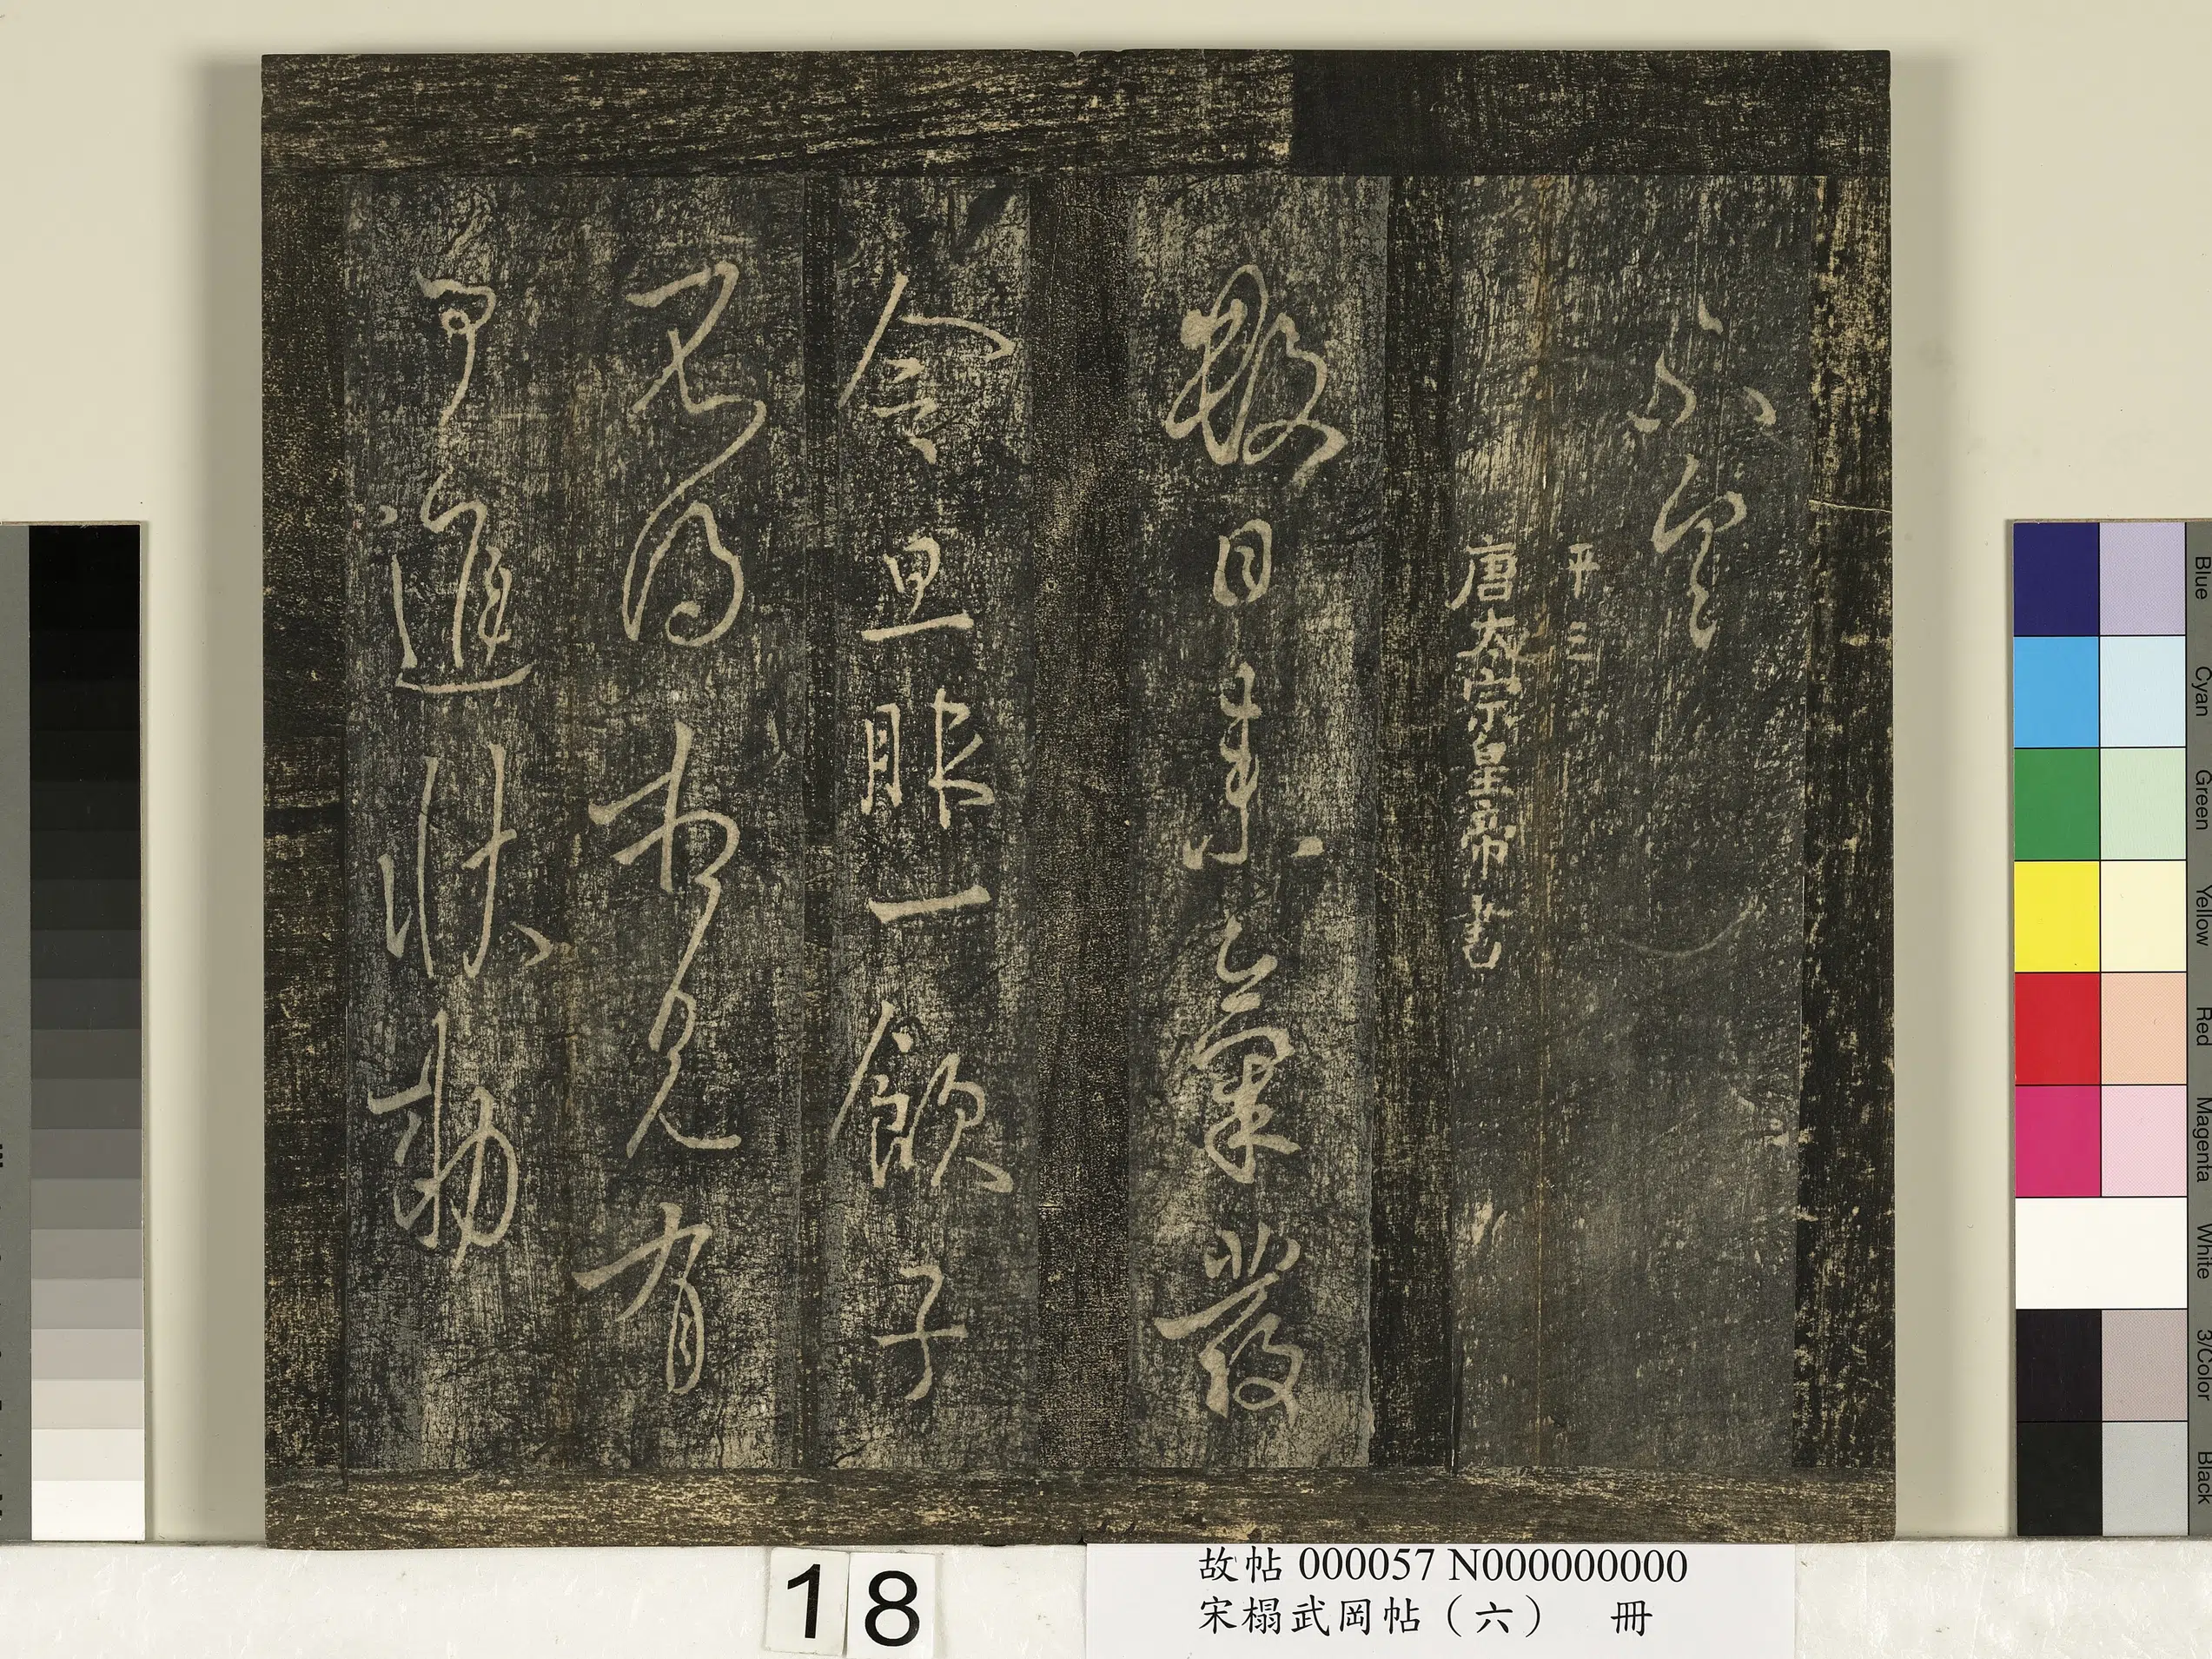 不
平三
唐太宗皇帝書
數日來氣發
今旦服一飲子
見有
可進狀勅
18
故帖 000057 N000000000
宋榻武岡帖（六） 冊
Blue
Cyan
Green
Yellow
Red
Magenta
White
3/Color
Black